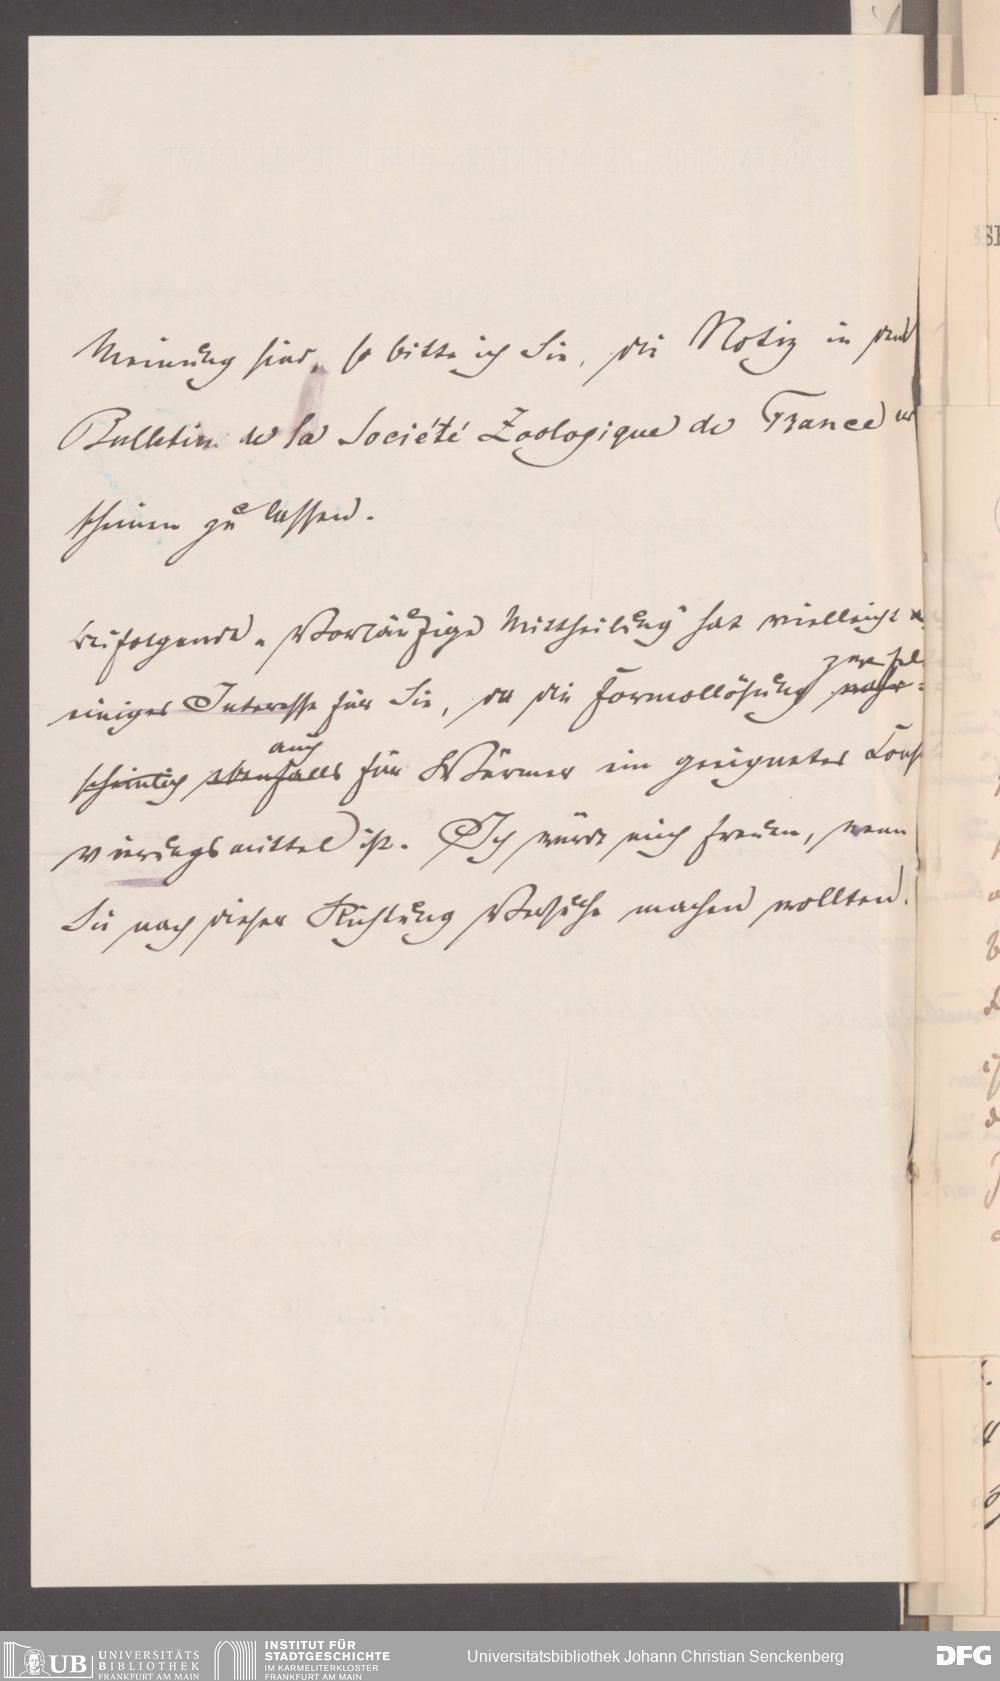 Meinung sind, so bitte ich Sie, die Notiz in dem
Bulletin de la Société Zoologique de France er
scheinen zu lassen.
Beifolgende „Vorläufige Mittheilung“ hat vielleicht
einiges Interesse für Sie, da die Formollösung zweifel
wahr-
scheinlich ebenfalls auch für Würmer ein geeignetes Cons
virungsmittel ist. Ich würde mich freuen, wenn
Sie nach dieser Richtung Versuche machen wollten.
UB UNIVERSITÄTS
BIBLIOTHEK
FRANKFURT AM MAIN
INSTITUT FÜR
STADTGESCHICHTE
IM KARMELITERKLOSTER
FRANKFURT AM MAIN
Universitätsbibliothek Johann Christian Senckenberg
DFG